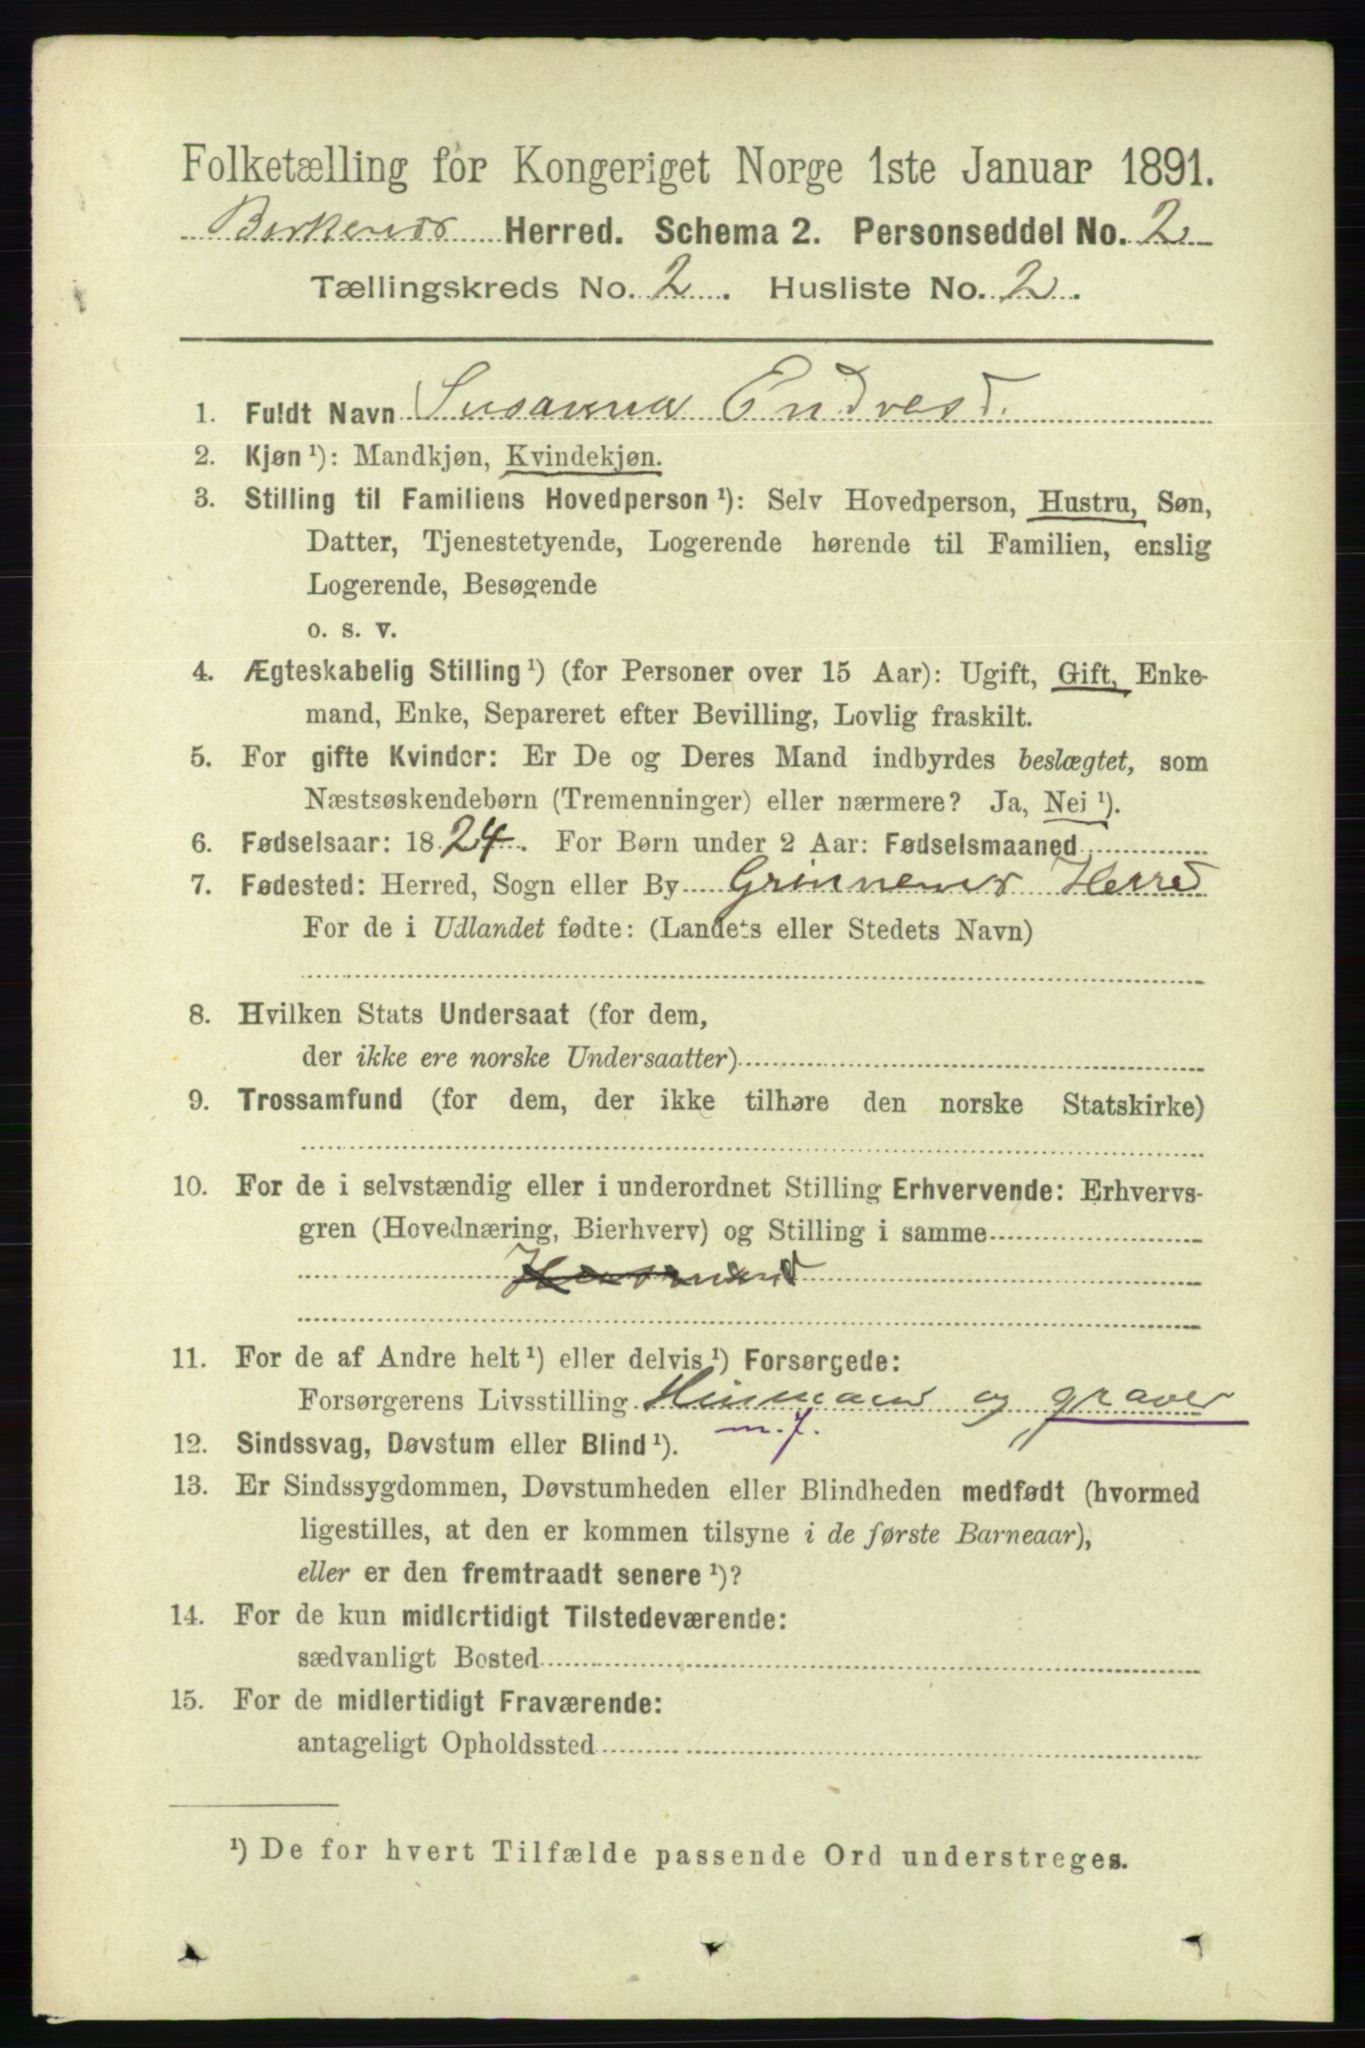 Folketælling for Kongeriget Norge 1ste Januar 1891.
Birkenes Herred. Schema 2. Personseddel No. 2
Tællingskreds No. 2. Husliste No. 2.
1. Fuldt Navn Susanna Endresd.
2. Kjøn ¹): Mandkjøn, Kvindekjøn.
3. Stilling til Familiens Hovedperson ¹): Selv Hovedperson, Hustru, Søn,
Datter, Tjenestetyende, Logerende hørende til Familien, enslig
Logerende, Besøgende
o. s. v.
4. Ægteskabelig Stilling ¹) (for Personer over 15 Aar): Ugift, Gift, Enke-
mand, Enke, Separeret efter Bevilling, Lovlig fraskilt.
5. For gifte Kvinder: Er De og Deres Mand indbyrdes beslægtet, som
Næstsøskendebørn (Tremenninger) eller nærmere? Ja, Nei ¹).
6. Fødselsaar: 1824. For Børn under 2 Aar: Fødselsmaaned
7. Fødested: Herred, Sogn eller By Herred
For de i Udlandet fødte: (Landets eller Stedets Navn)
8. Hvilken Stats Undersaat (for dem,
der ikke ere norske Undersaatter)
9. Trossamfund (for dem, der ikke tilhøre den norske Statskirke)
10. For de i selvstændig eller i underordnet Stilling Erhvervende: Erhvervs-
gren (Hovednæring, Bierhverv) og Stilling i samme
Husmand
11. For de af Andre helt ¹) eller delvis ¹) Forsørgede:
Forsørgerens Livsstilling Husmand og graver
m. j.
12. Sindssvag, Døvstum eller Blind ¹).
13. Er Sindssygdommen, Døvstumheden eller Blindheden medfødt (hvormed
ligestilles, at den er kommen tilsyne i de første Barneaar),
eller er den fremtraadt senere ¹)?
14. For de kun midlertidigt Tilstedeværende:
sædvanligt Bosted
15. For de midlertidigt Fraværende:
antageligt Opholdssted
¹) De for hvert Tilfælde passende Ord understreges.